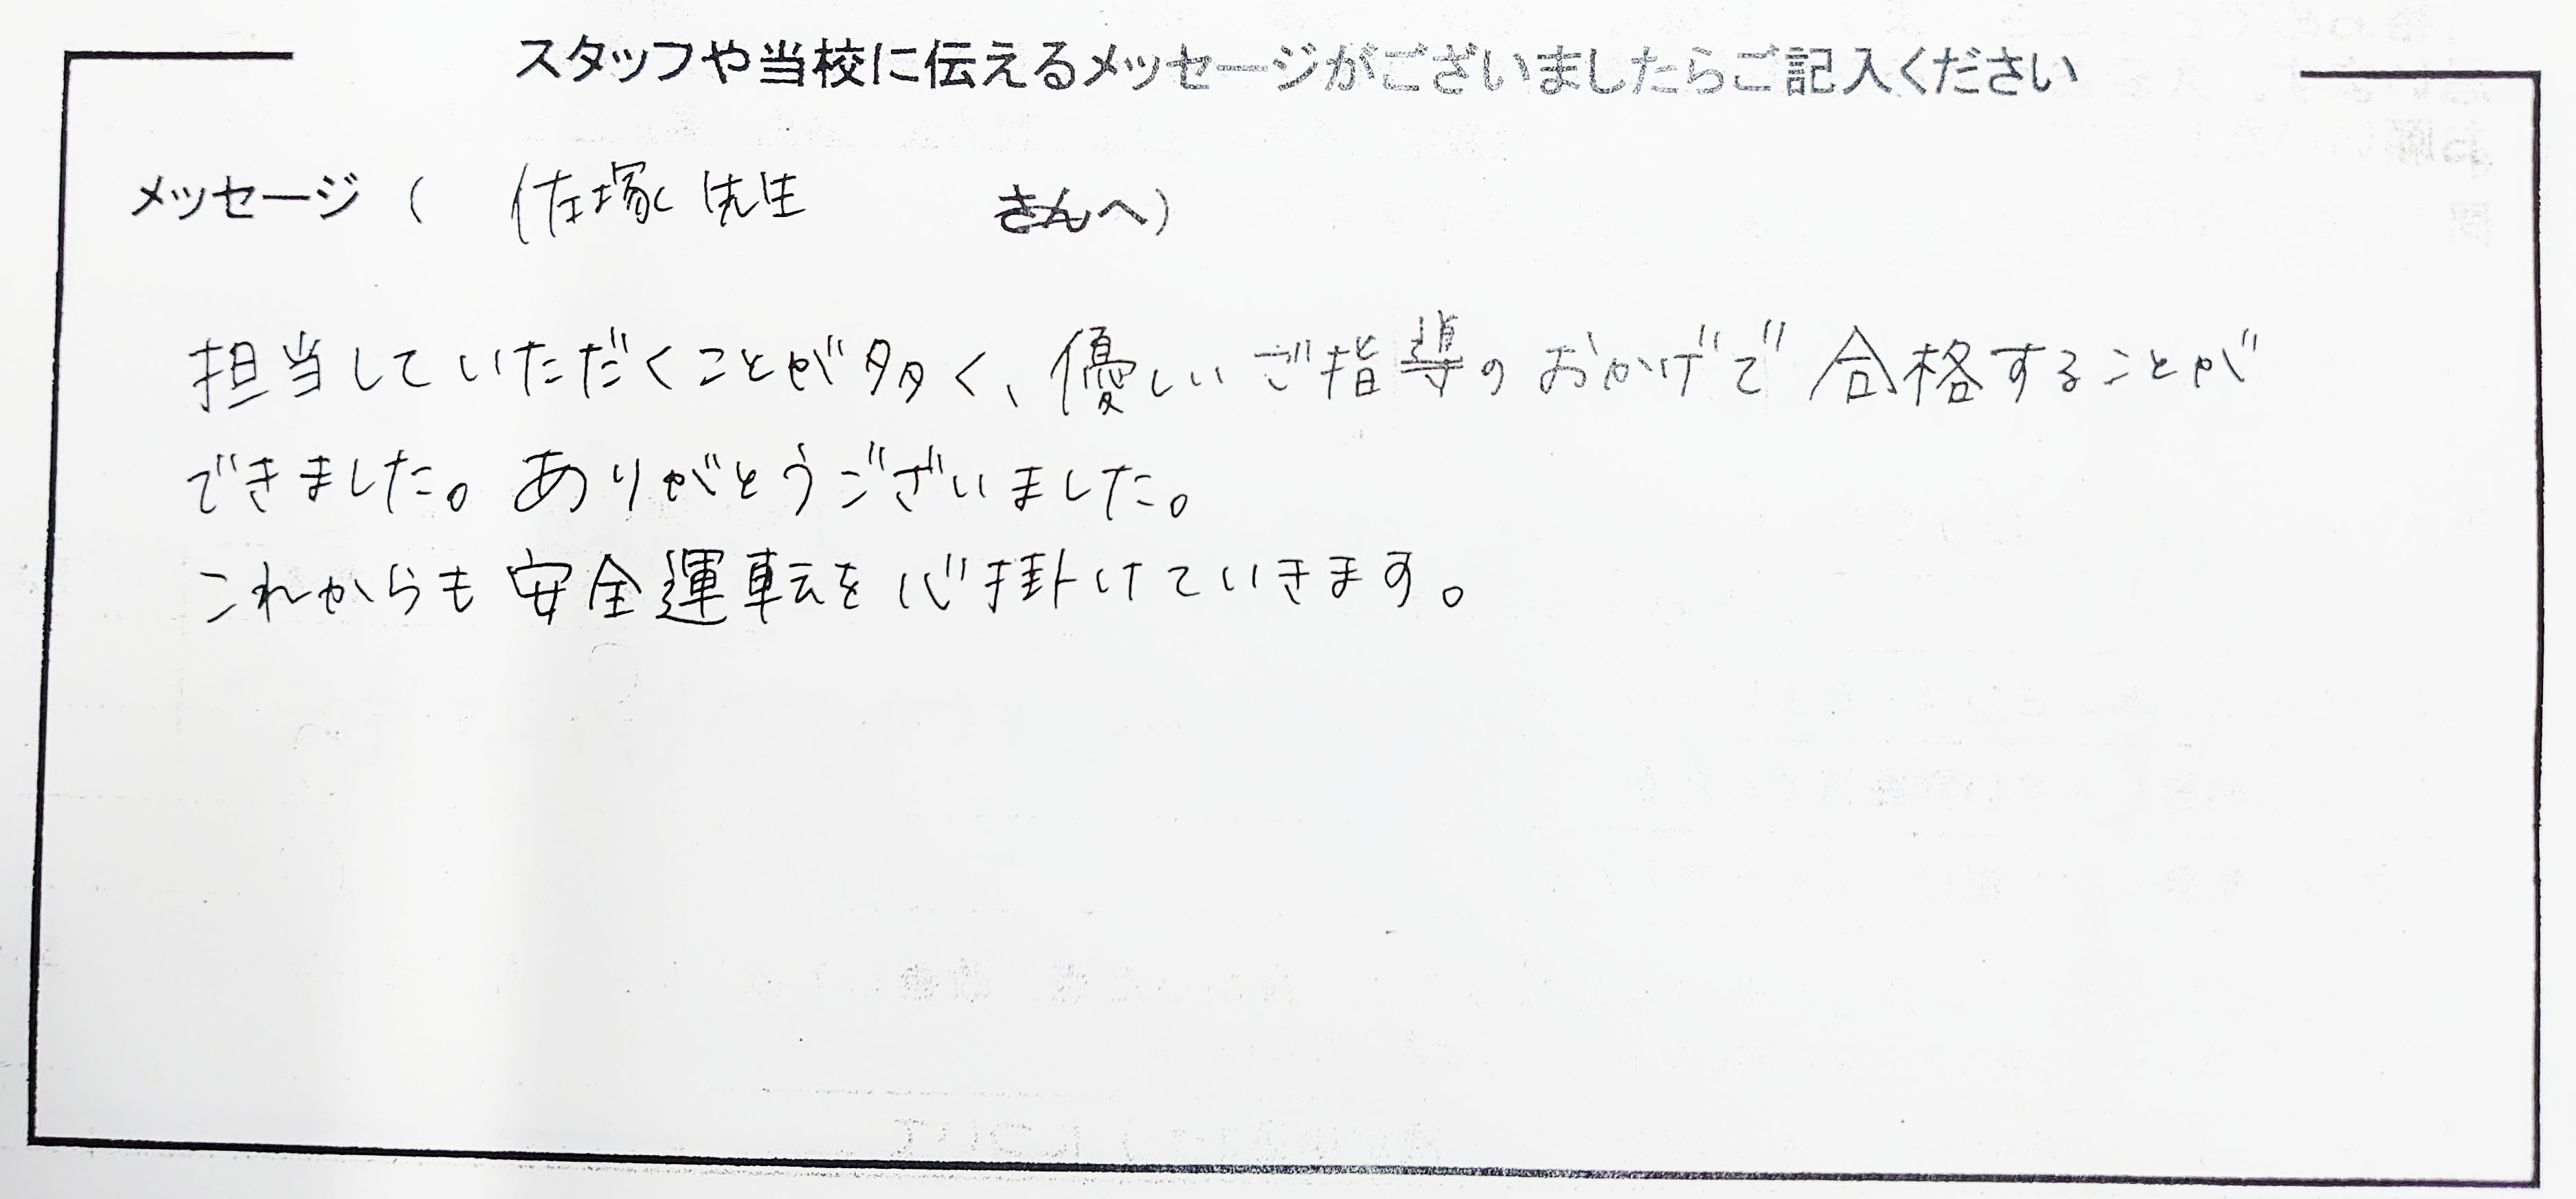 スタッフや当校に伝えるメッセージがございましたらご記入ください
メッセージ ( 佐塚先生 さんへ)
担当していただくことが多く、優しいご指導のおかげで合格することが
できました。ありがとうございました。
これからも安全運転を心掛けていきます。